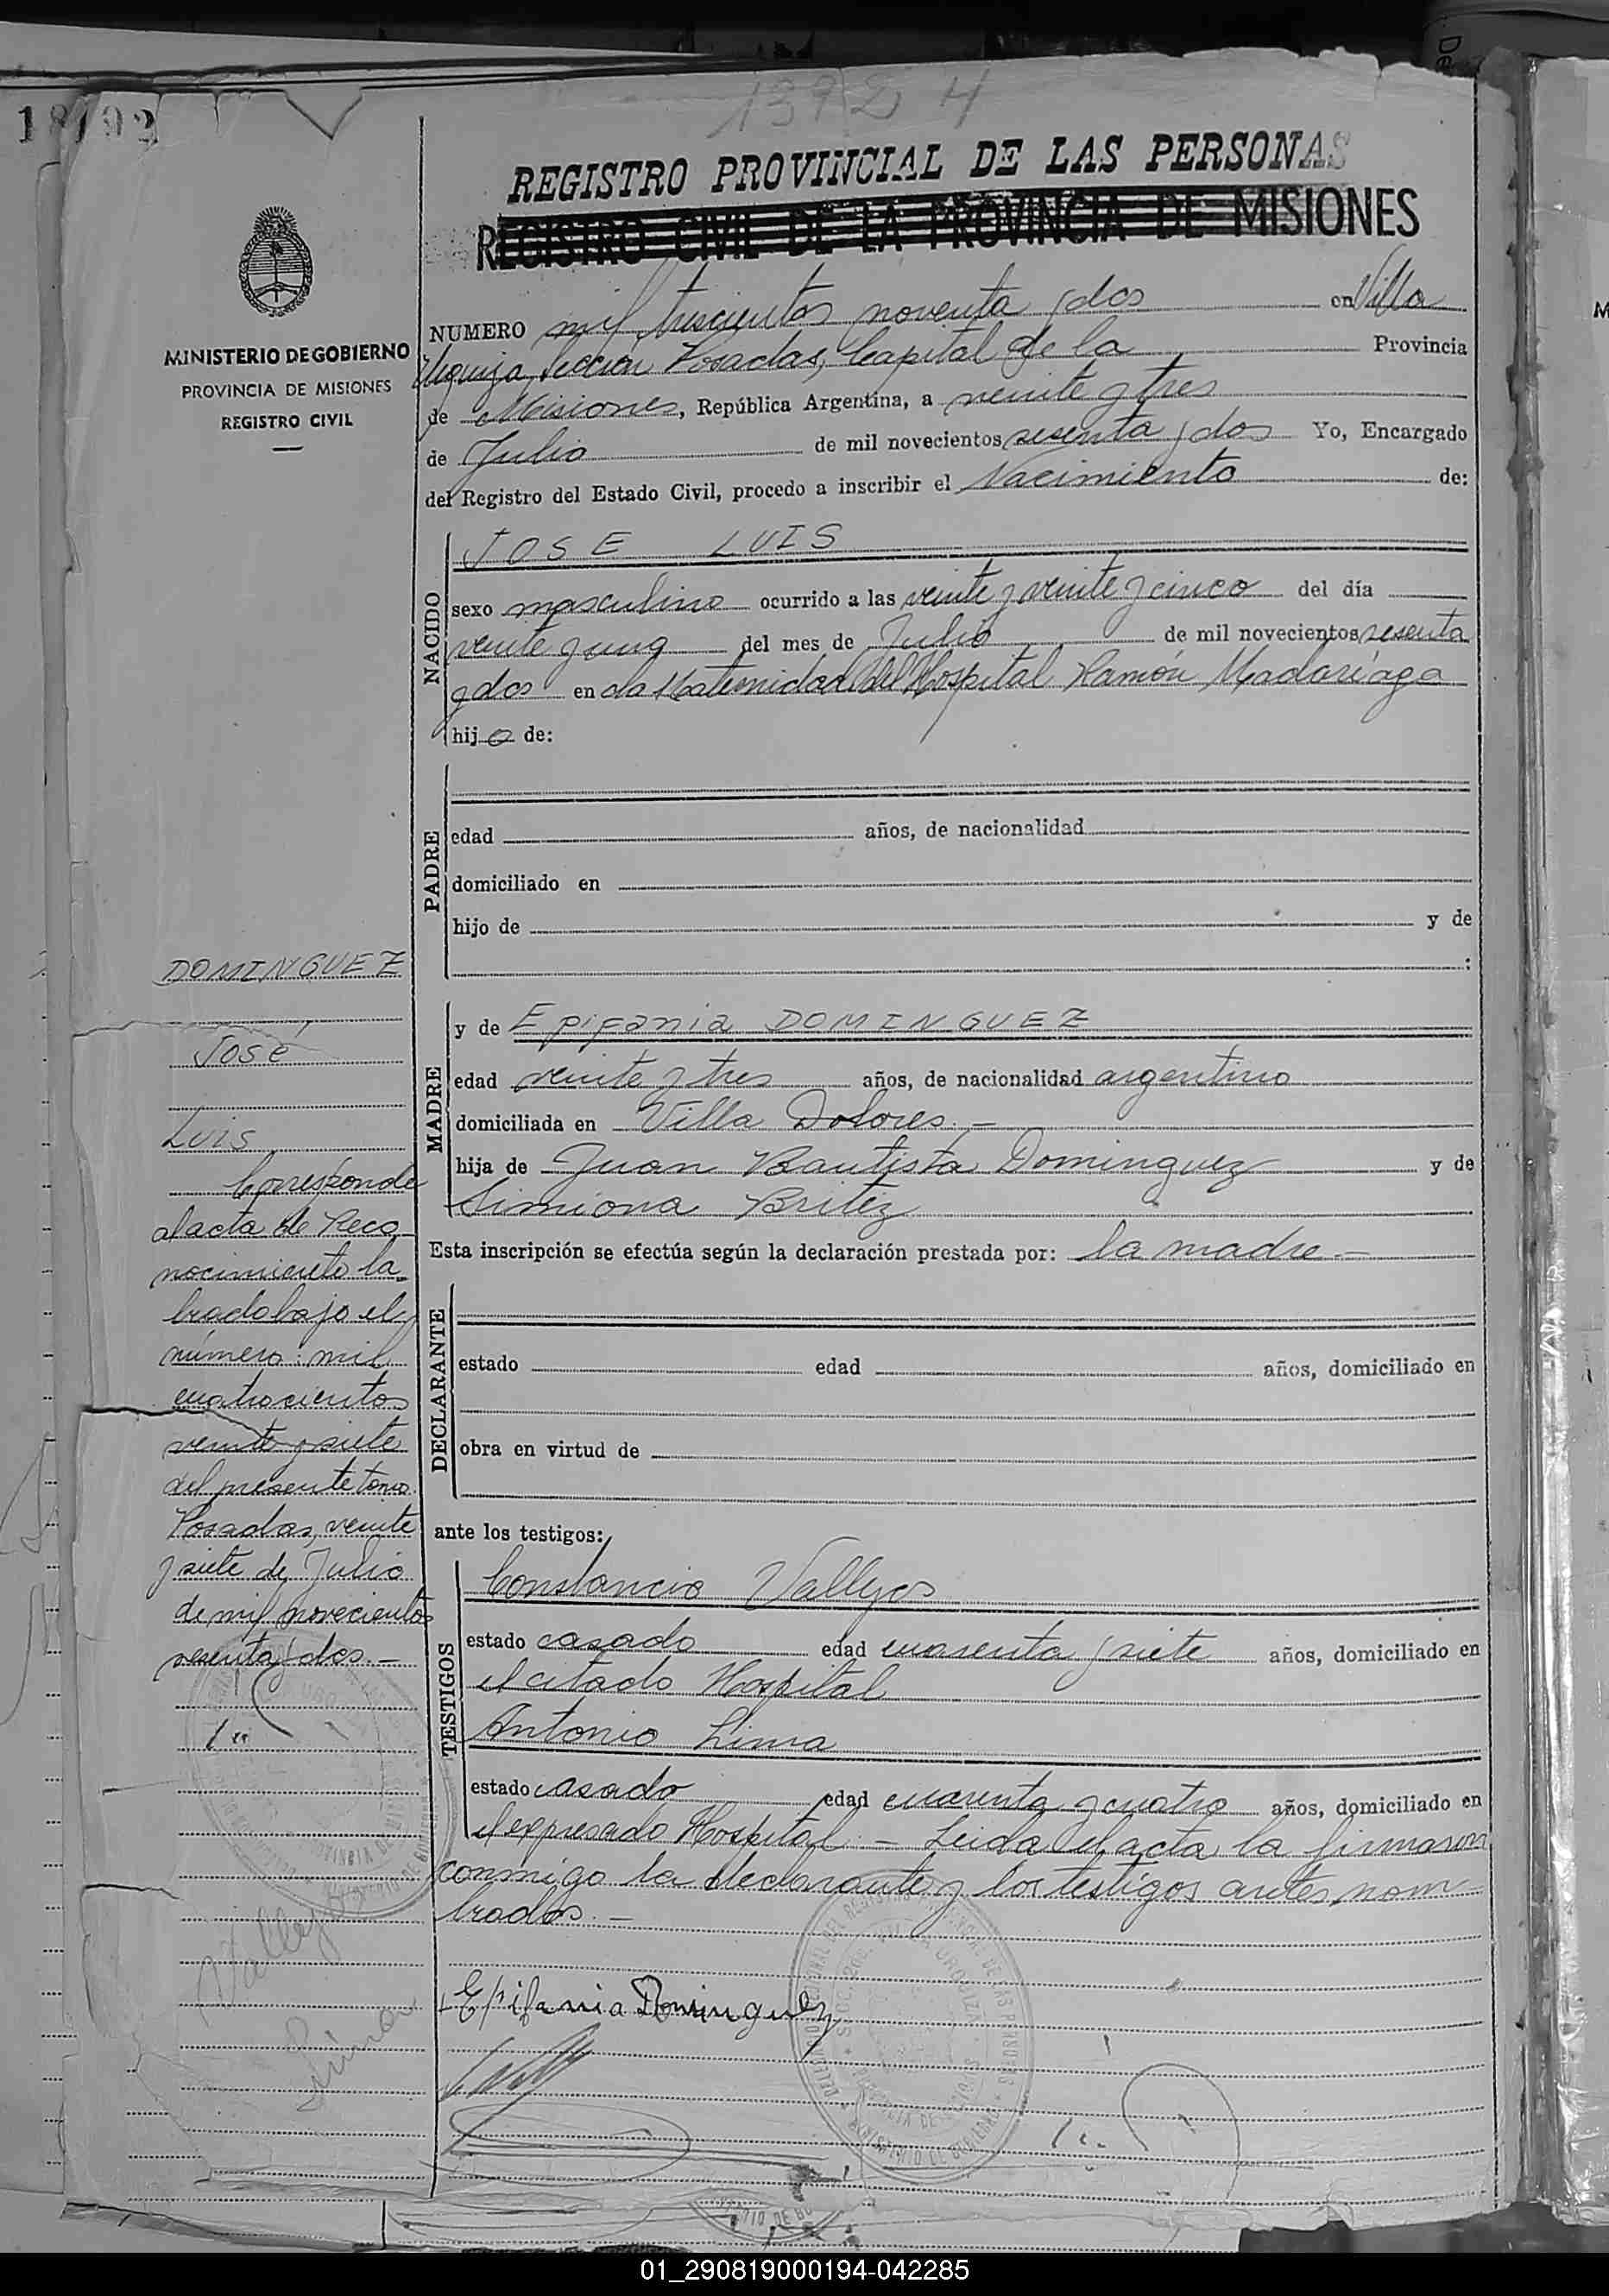 1392 H
REGISTRO PROVINCIAL DE LAS PERSONAS
REGISTRO CIVIL DE LA PROVINCIA DE MISIONES
MINISTERIO DE GOBIERNO
PROVINCIA DE MISIONES
REGISTRO CIVIL
NUMERO mil trescientos noventa y dos en Villa
Urquiza, Sección Posadas, Capital de la Provincia
de Misiones, República Argentina, a veinte y tres
de Julio de mil novecientos sesenta y dos Yo, Encargado
del Registro del Estado Civil, procedo a inscribir el Nacimiento de:
NACIDO
JOSE LUIS
sexo masculino ocurrido a las veinte y veinte y cinco del día
veinte y uno del mes de Julio de mil novecientos sesenta
y dos en la Maternidad del Hospital Ramón Madariaga
hijo de:
PADRE
edad años, de nacionalidad
domiciliado en
hijo de y de
:
MADRE
y de Epifania DOMINGUEZ
edad veinte y tres años, de nacionalidad argentino
domiciliada en Villa Dolores.-
hija de Juan Bautista Dominguez y de
Simiona Britez
Esta inscripción se efectúa según la declaración prestada por: la madre.-
DECLARANTE
estado edad años, domiciliado en
obra en virtud de
ante los testigos:
TESTIGOS
Constancio Vallejos
estado casado edad cuarenta y siete años, domiciliado en
el citado Hospital
Antonio Lima
estado casado edad cuarenta y cuatro años, domiciliado en
el expresado Hospital.- Leida el acta la firmaron
conmigo la declarante y los testigos antes nom-
brados.-
Epifania Dominguez
DOMINGUEZ
José
Luis
Corresponde
al acta de Reco-
nocimiento la-
brado bajo el
número: mil
cuatrocientos
veinte y siete
del presente tomo.
Posadas, veinte
y siete de Julio
de mil novecientos
sesenta y dos.-
Vallejos
Lima
01_290819000194-042285